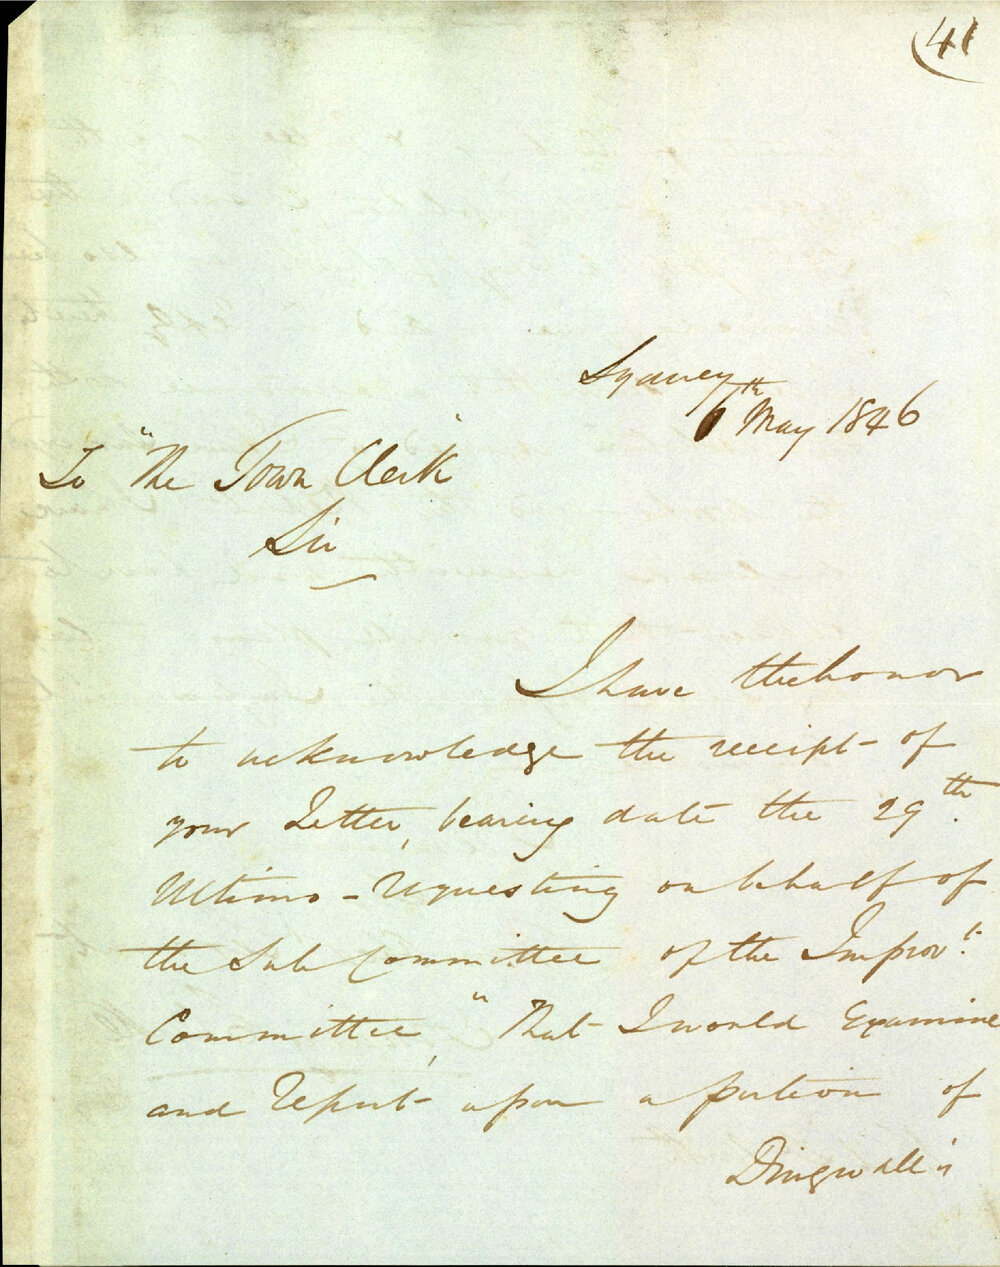 (41
Sydney
6th May 1846
To "The Town Clerk"
Sir
I have the honor
to acknowledge the receipt of
your Letter, bearing date the 29th.
Ultimo - Requesting on behalf of
the Sub Committee of the Improvt.
Committee, "That I would Examine
and Report upon a portion of
Dingwall's